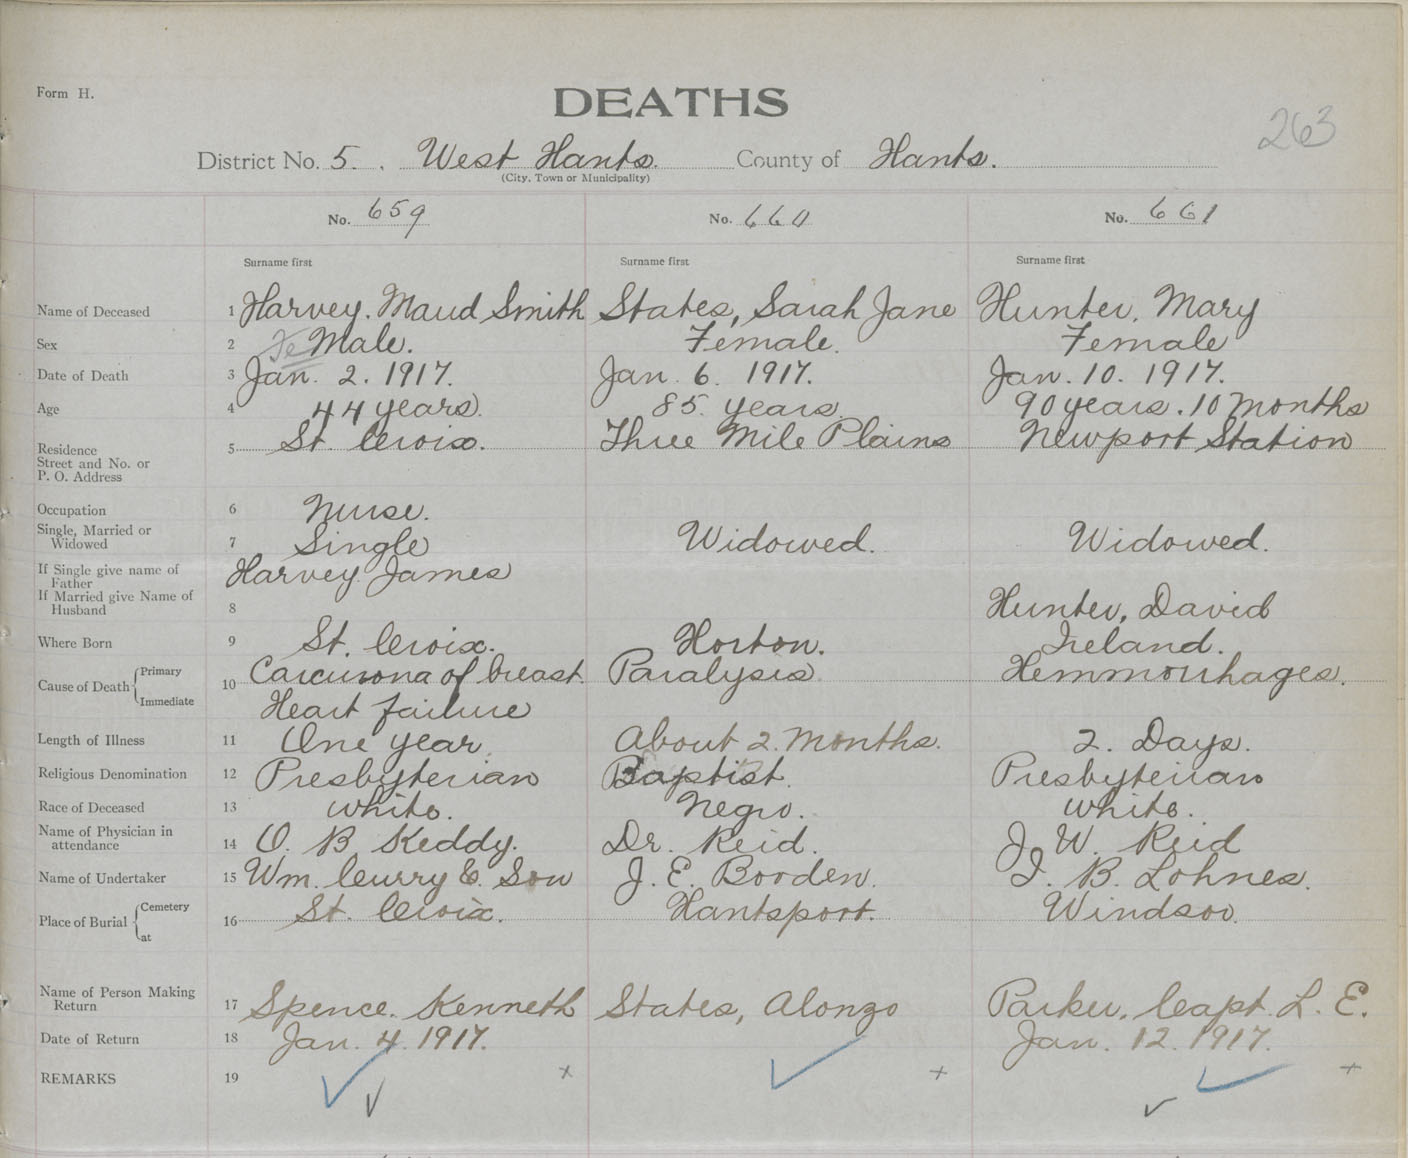 Form H.
DEATHS
263
District No. 5. West Hants. County of Hants.
(City, Town or Municipality)
No. 659 No. 660 No. 661
Surname first Surname first Surname first
Name of Deceased 1 Harvey. Maud Smith States, Sarah Jane Hunter, Mary
Sex 2 Fe Male. Female. Female
Date of Death 3 Jan. 2. 1917. Jan. 6. 1917. Jan. 10. 1917.
Age 4 44 years. 85. years. 90 years. 10 months
Residence
Street and No. or
P. O. Address 5 St. Croix. Three Mile Plains Newport Station
Occupation 6 Nurse.
Single, Married or
Widowed 7 Single Widowed. Widowed.
If Single give name of
Father Harvey James
If Married give Name of
Husband 8 Hunter, David
Where Born 9 St. Croix. Horton. Ireland.
Cause of Death Primary
Immediate 10 Carcinona of breast Paralysis Hemmorrhages.
Heart failure
Length of Illness 11 One year. About 2. months. 2. Days.
Religious Denomination 12 Presbyterian Baptist. Presbyterian
Race of Deceased 13 white. Negro. white.
Name of Physician in
attendance 14 O. B Keddy. Dr. Reid. J. W. Reid
Name of Undertaker 15 Wm. Curry & Son J. E. Borden. I. B. Lohnes.
Place of Burial Cemetery
at 16 St. Croix. Hantsport. Windsor.
Name of Person Making
Return 17 Spence. Kenneth States, Alonzo Parker, Capt. L. E.
Date of Return 18 Jan. 4. 1917. Jan. 12. 1917.
REMARKS 19